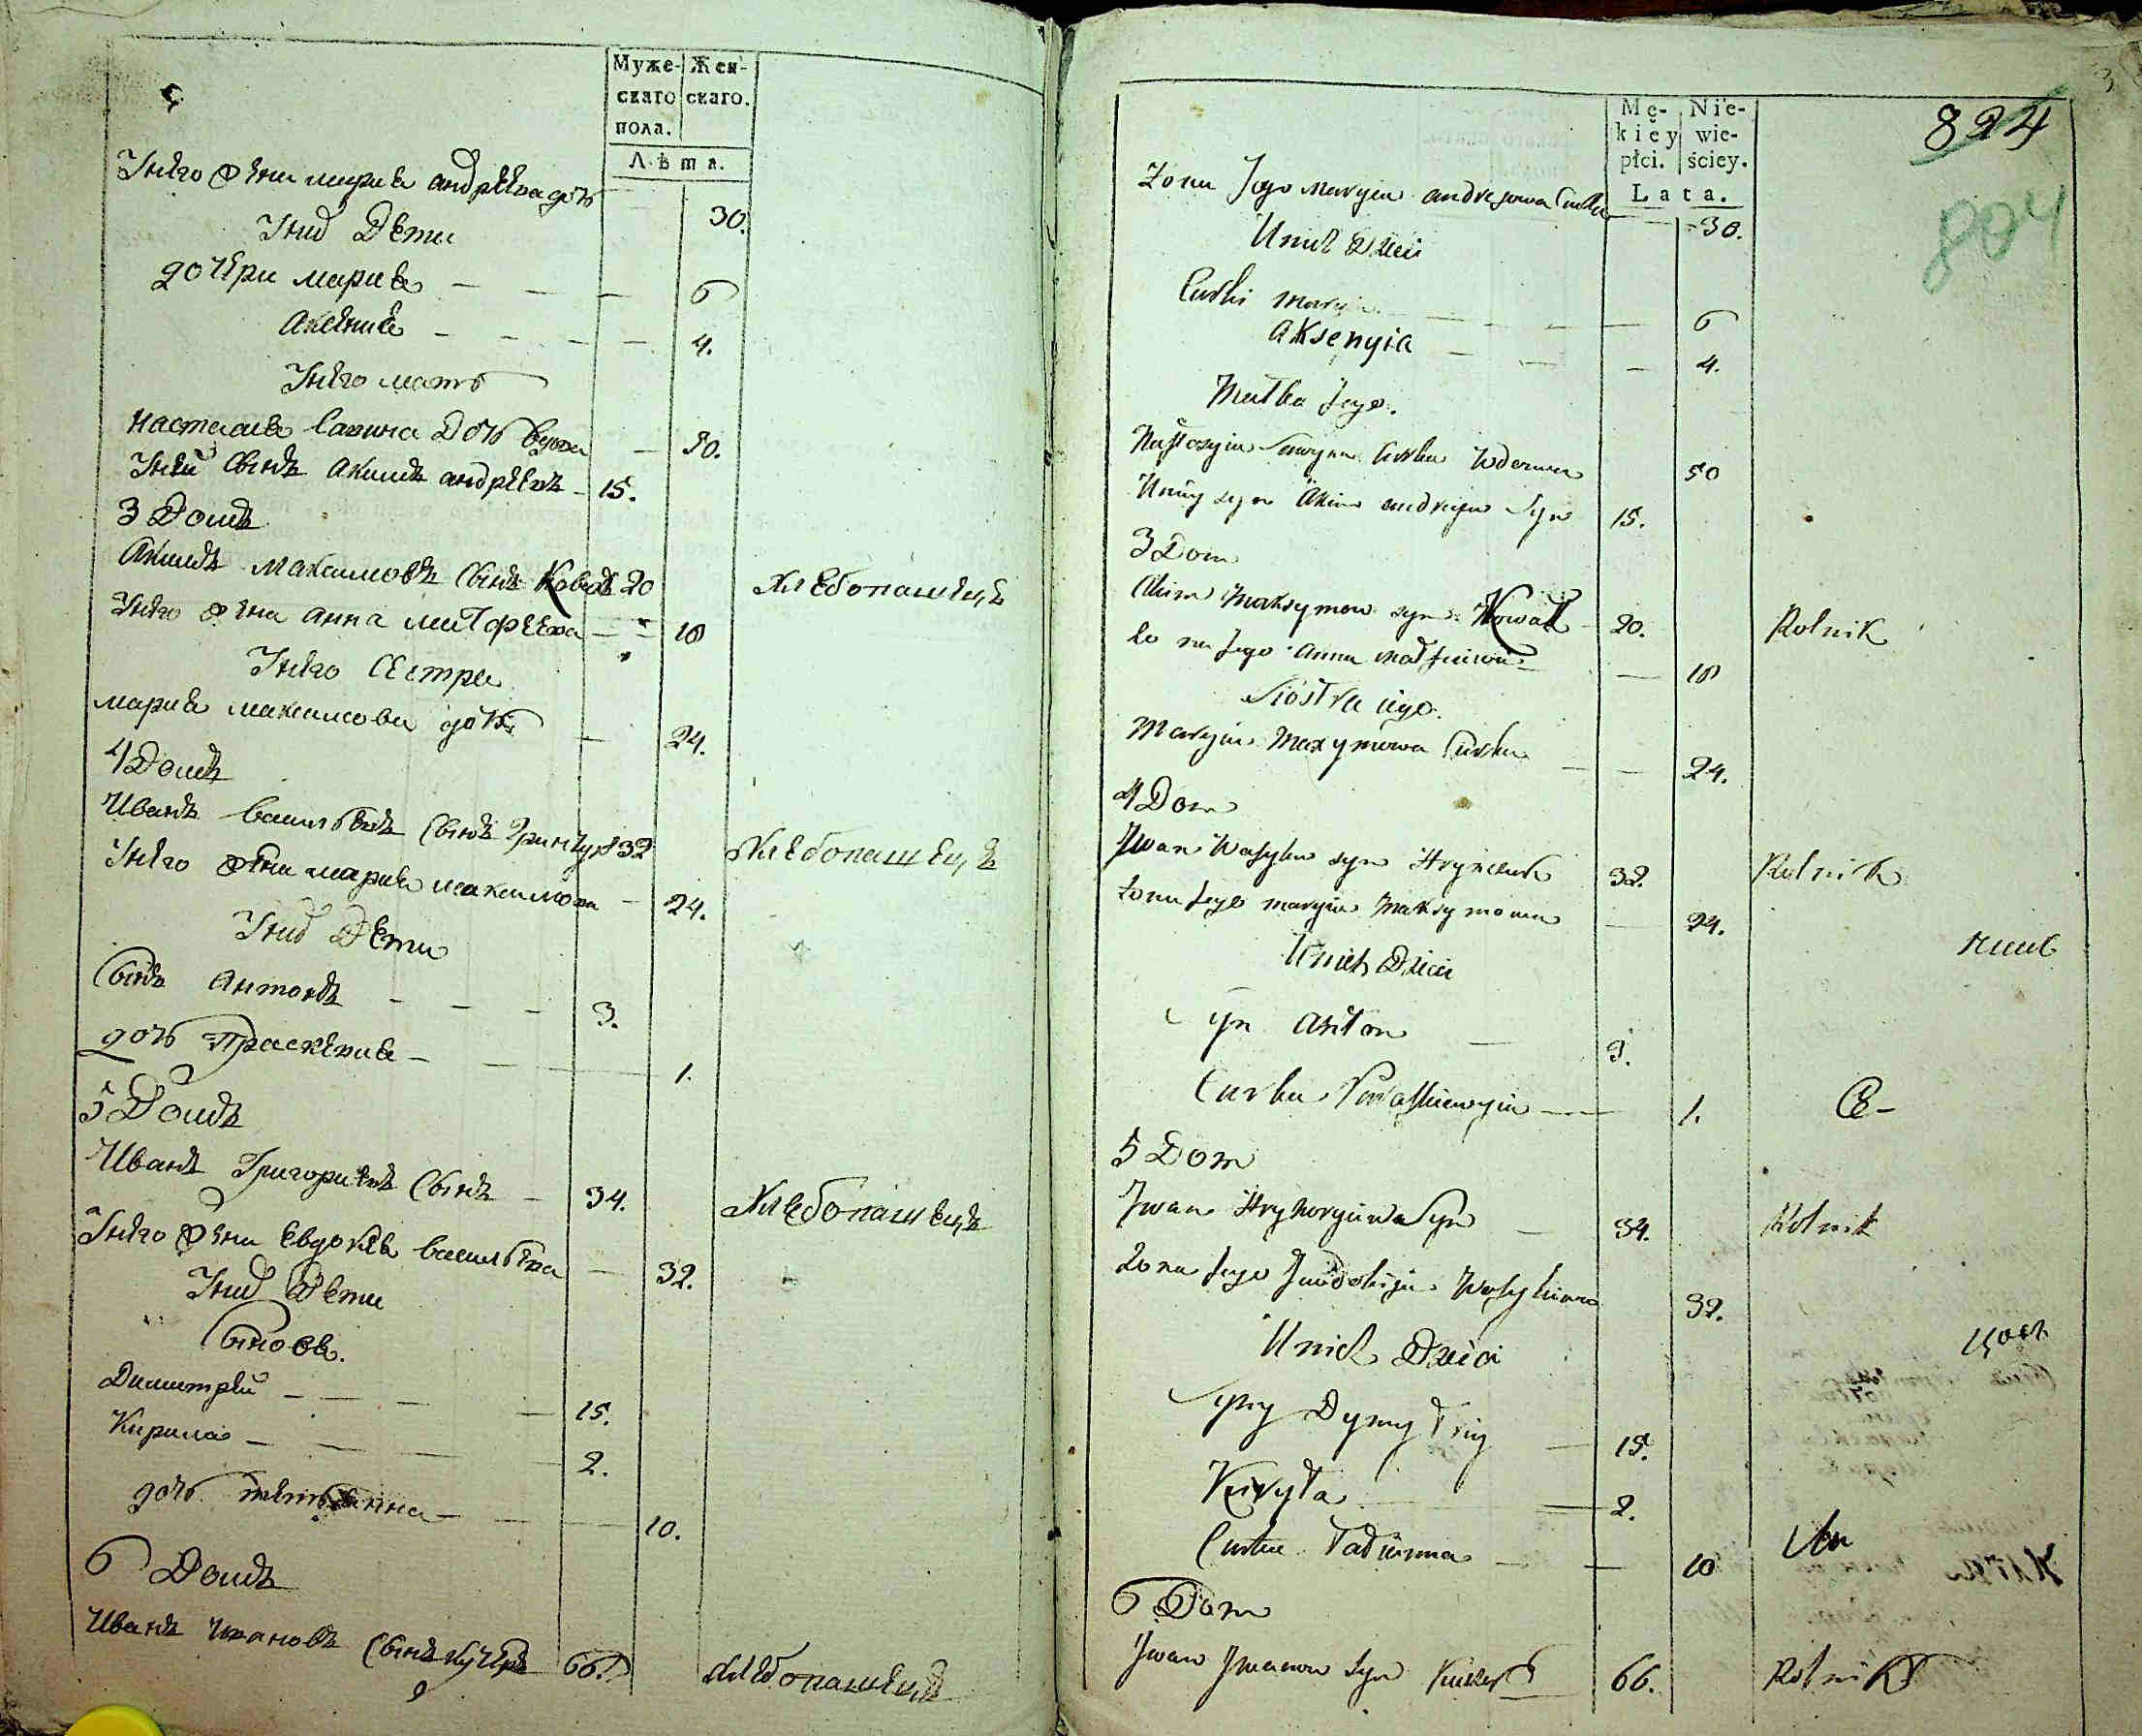 Муже- Жен-
скаго скаго.
пола.
Лѣта.
Унѣго жена мария андрѣева дочь 30.
Уних Дети
дочери мария 6
Аксения 4.
Унѣго мать
Настасия Савина Дочь вдова 50.
Уней Сынъ Акимъ андрѣевъ 15.
3 Домъ
Акимъ Максимовъ Сынъ Ковалъ 20 Хлебопашецъ
Унѣго жена Анна 18
Унѣго Сестра
мария максимова дочь 24.
4 Домъ
Иванъ Васильевъ Сынъ Гринчукъ 32 Хлебопашецъ
Унего жена мария максимова 24.
Уних Дети
Сынъ Антонъ 3.
дочь Прасковия 1.
5 Домъ
Иванъ Григориевъ Сынъ 34. Хлебопашецъ
Унѣго жена Евдокия васильева 32.
Уних Дети
Сыновя.
Димитрий 15.
Кирила 2.
дочь 10.
6 Домъ
Иванъ Ивановъ Сынъ Кучеръ 66. Хлебопашецъ
824
804
Mę- Nie-
kiéy wie-
płci. ściey.
Lata.
Zona Jego Maryia andrejowa Curka 30.
Unich Dzieci
Curki Maryia 6
Aksenyia 4.
Matka Jego.
Nastazyia Sawyna Curka Wdowa 50
Uniey syn Akim andrejew Syn 15.
3 Dom
Akim Maksymow syn Kowal 20. Rolnik
Zona Jego Anna 18
Siostra iego.
Maryia Maxymowa Curka 24.
4 Dom
Jwan Wasylew syn Hrynczuk 32. Rolnik
Zona Jego maryia Maksymowa 24.
Unich Dzieci
Syn Anton 3.
Curka Paraskiewyia 1.
5 Dom
Jwan Hryhoryiewa Syn 34. Rolnik
Zona Jego Jewdokija Wasylowa 32.
Unich Dzieci
Syny Dymytriy 15.
Kiryła 2.
Curka Tatianna 10
6 Dom
Jwan Jwanow Syn Kuczer 66. Rolnik